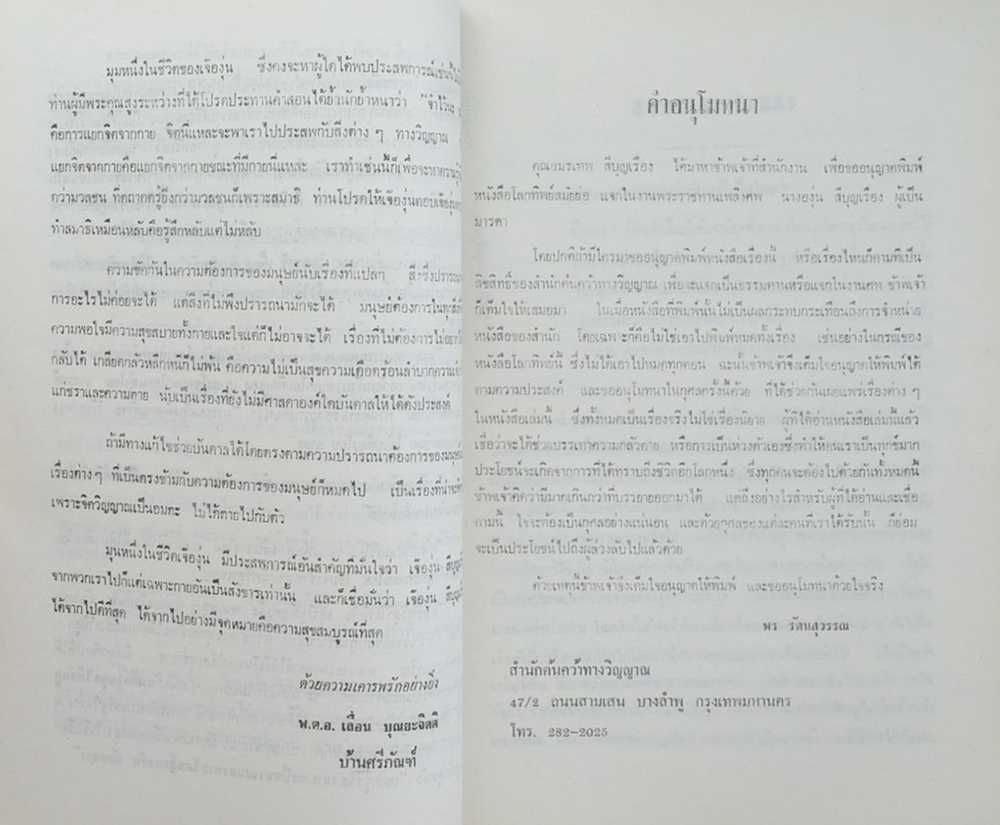 มุมหนึ่งในชีวิตของเจ๊องุ่น ซึ่งคงจะหาผู้ใดได้พบประสพการณ์เช่นนี้
ท่านผู้มีพระคุณสูงระหว่างที่ได้โปรดประทานคำสอนได้ย้ำนักย้ำหนาว่า "จำไว้นะ
คือการแยกจิตจากกาย จิตนี่แหละจะพาเราไปประสพกับสิ่งต่าง ๆ ทางวิญญาณ
แยกจิตจากกายคือแยกจิตจากกายขณะที่มีกายนี่แหละ เราทำเช่นนี้ก็เพื่อจะหาความรู้
กว่ามวลชน ที่คถาคตรู้ยิ่งกว่ามวลชนก็เพราะสมาธิ ท่านโปรดให้เจ๊องุ่นตอบเจ๊องุ่น
ทำสมาธิเหมือนหลับคือรู้สึกหลับแต่ไม่หลับ
ความขัดกันในความต้องการของมนุษย์นับเรื่องที่แปลก สิ่งซึ่งปรารถนา
การอะไรไม่ค่อยจะได้ แต่สิ่งที่ไม่พึงปรารถนามักจะได้ มนุษย์ต้องการในทุกสิ่ง
ความพอใจมีความสุขสบายทั้งกายและใจแต่ก็ไม่อาจจะได้ เรื่องที่ไม่ต้องการไม่อยาก
กลับได้ เกลียดกลัวหลีกหนีก็ไม่พ้น คือความไม่เป็นสุขความเดือดร้อนลำบากความ
แก่ชราและความตาย นับเป็นเรื่องที่ยังไม่มีศาสดาองค์ใดบันดาลให้ได้ดังประสงค์
ถ้ามีทางแก้ไขช่วยบันดาลได้โดยตรงตามความปรารถนาต้องการของมนุษย์
เรื่องต่างๆ ที่เป็นตรงข้ามกับความต้องการของมนุษย์ก็หมดไป เป็นเรื่องที่น่าจะ
เพราะจิตวิญญาณเป็นอมตะ ไม่ได้ตายไปกับตัว
มุมหนึ่งในชีวิตเจ๊องุ่น มีประสพการณ์อันสำคัญที่มั่นใจว่า เจ๊องุ่น สืบบุญ
จากพวกเราไปก็แต่เฉพาะกายอันเป็นสังขารเท่านั้น และก็เชื่อมั่นว่า เจ๊องุ่น สืบบุญ
ได้จากไปดีที่สุด ได้จากไปอย่างมีจุดหมายคือความสุขสมบูรณ์ที่สุด
ด้วยความเคารพรักอย่างยิ่ง
พ.ต.อ. เลื่อน บุณยะจิตติ
บ้านศรีภัณฑ์
คำอนุโมทนา
คุณอมรเทพ สืบุญเรือง ได้มาหาข้าพเจ้าที่สำนักงาน เพื่อขออนุญาตพิมพ์
หนังสือโลกทิพย์สมัยย่อ แจกในงานพระราชทานเพลิงศพ นางองุ่น สืบุญเรือง ผู้เป็น
มารดา
โดยปกติถ้ามีใครมาขออนุญาตพิมพ์หนังสือเรื่องนี้ หรือเรื่องไหนก็ตามที่เป็น
ลิขสิทธิ์ของสำนักค้นคว้าทางวิญญาณ เพื่อจะแจกเป็นธรรมทานหรือแจกในงานศพ ข้าพเจ้า
ก็เต็มใจให้เสมอมา ในเมื่อหนังสือที่พิมพ์นั้นไม่เป็นผลกระทบกระเทือนถึงการจำหน่าย
หนังสือของสำนัก โดยเฉพาะก็คือไม่ใช่เอาไปพิมพ์หมดทั้งเรื่อง เช่นอย่างในกรณีของ
หนังสือโลกทิพย์นี้ ซึ่งไม่ได้เอาไปหมดทุกตอน ฉะนั้นข้าพเจ้าจึงเต็มใจอนุญาตให้พิมพ์ได้
ตามความประสงค์ และขออนุโมทนาในกุศลครั้งนี้ด้วย ที่ได้ช่วยกันเผยแพร่เรื่องต่าง ๆ
ในหนังสือเล่มนี้ ซึ่งทั้งหมดเป็นเรื่องจริงไม่ใช่เรื่องนิยาย ผู้ที่ได้อ่านหนังสือเล่มนี้แล้ว
เชื่อว่าจะได้ช่วยบรรเทาความกลัวตาย หรือการเป็นห่วงตัวเองซึ่งทำให้คนเราเป็นทุกข์มาก
ประโยชน์จะเกิดจากการที่ได้ทราบถึงชีวิตอีกโลกหนึ่ง ซึ่งทุกคนจะต้องไปด้วยกันทั้งหมดนี้
ข้าพเจ้าคิดว่ามีมากเกินกว่าที่บรรยายออกมาได้ แต่ถึงอย่างไรสำหรับผู้ที่ได้อ่านและเชื่อ
ตามนี้ ใจจะต้องเป็นกุศลอย่างแน่นอน และด้วยกุศลของแต่ละคนที่เราได้รับนั้น ก็ย่อม
จะเป็นประโยชน์ไปถึงผู้ล่วงลับไปแล้วด้วย
ด้วยเหตุนี้ข้าพเจ้าจึงเต็มใจอนุญาตให้พิมพ์ และขออนุโมทนาด้วยใจจริง
พร รัตนสุวรรณ
สำนักค้นคว้าทางวิญญาณ
47/2 ถนนสามเสน บางลำพู กรุงเทพมหานคร
โทร. 282-2025